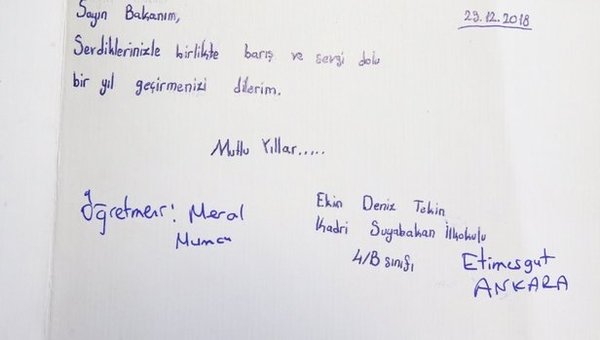 Sayın Bakanım,
23.12.2018
Serdiklerinizle birlikte barış ve sevgi dolu
bir yıl geçirmenizi dilerim.
Mutlu Yıllar.....
Öğretmen: Meral
Muncu
Ekin Deniz Tekin
Kadri Suyabakan İlkokulu
4/B sınıfı
Etimesgut
ANKARA